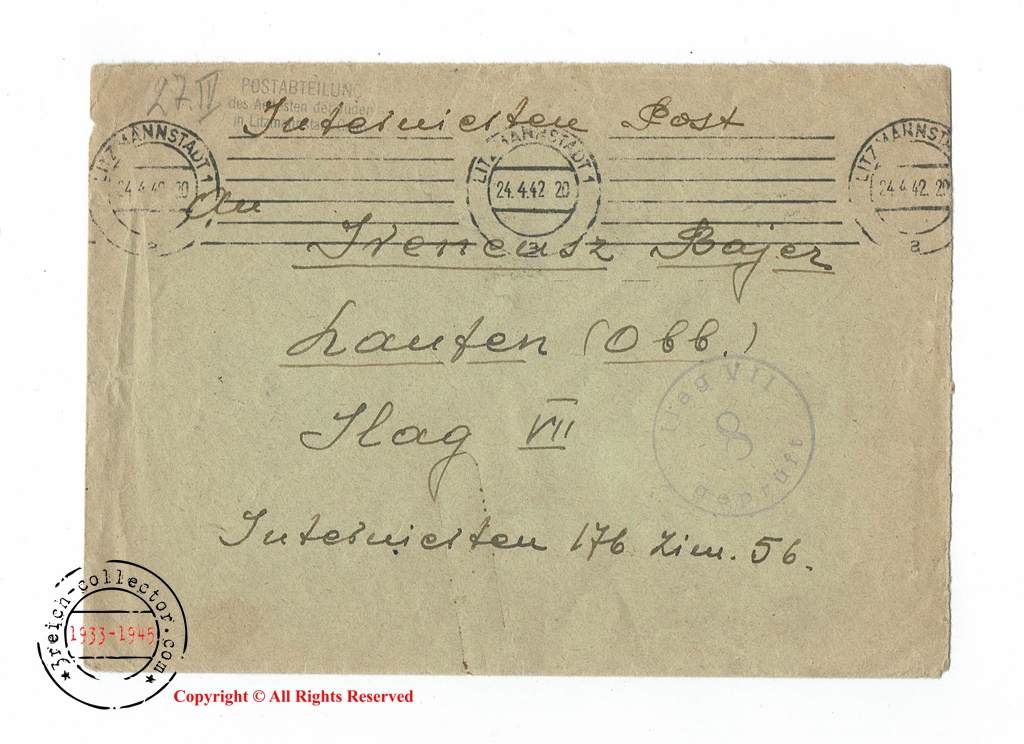 27. IV
POSTABTEILUNG
des Aeltesten der Juden
in Litzmannstadt
Internierten Post
LITZMANNSTADT 1
24.4.42 20
a
LITZMANNSTADT 1
24.4.42 20
a
LITZMANNSTADT
24.4.42 20
a
An
Ireneusz Bajer
Laufen (Obb.)
Ilag VII
Ilag VII
8
geprüft
Internierten 176 Zim. 56.
3reich-collector.com
1933-1945
Copyright © All Rights Reserved